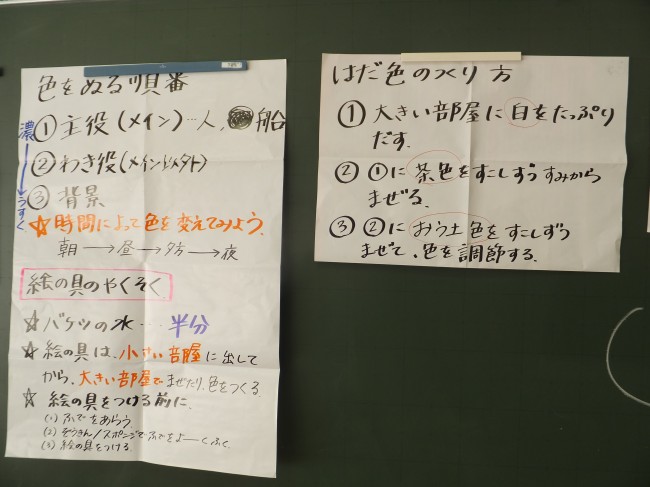 色をぬる順番
濃 → うすく
① 主役(メイン)…人、船
② わき役(メイン以外)
③ 背景
☆時間によって色を変えてみよう。
朝→昼→夕方→夜
絵の具のやくそく
☆ バケツの水… 半分
☆ 絵の具は、小さい部屋に出して
から、大きい部屋でまぜたり、色をつくる。
☆ 絵の具をつける前に、
(1) ふでをあらう
(2) ぞうきん/スポンジでふでをよーくふく
(3) 絵の具をつける。
はだ色のつくり方
① 大きい部屋に白をたっぷり
だす。
② ①に茶色をすこしずつすみから
まぜる。
③ ②におう土色をすこしずつ
まぜて、色を調節する。